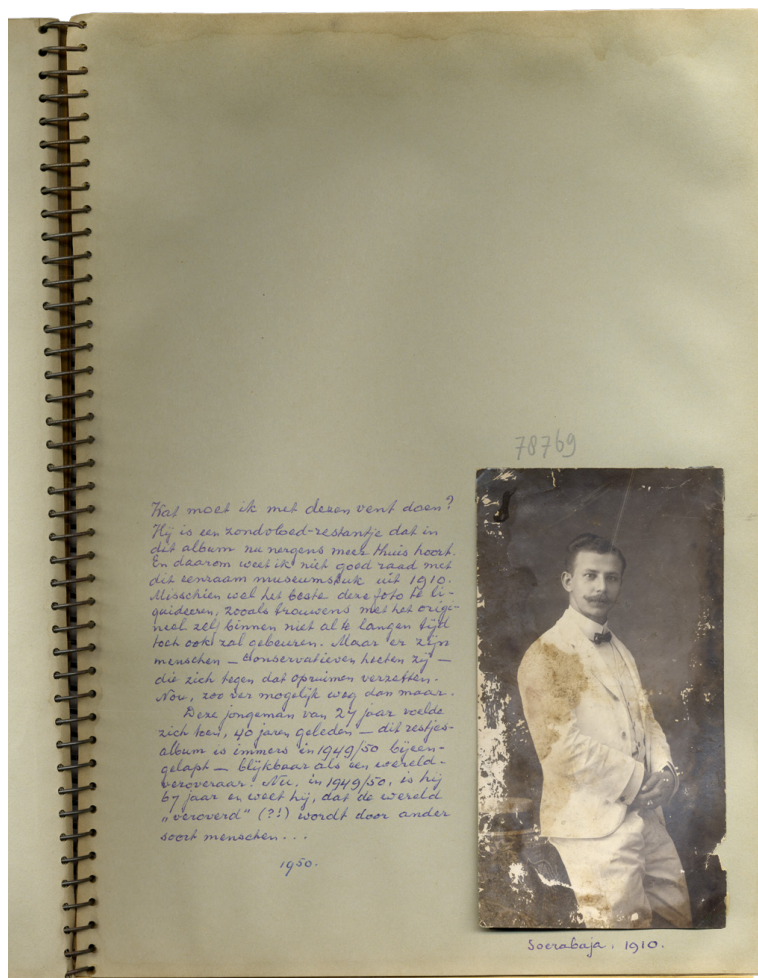 78769
Wat moet ik met dezen vent doen?
Hij is een zondvloed-restantje dat in
dit album nu nergens meer thuis hoort.
En daarom weet ik niet goed raad met
dit eenzaam museumstuk uit 1910.
Misschien wel het beste deze foto te li-
quideeren, zooals trouwens met het origi-
neel zelf binnen niet al te langen tijd
toch ook zal gebeuren. Maar er zijn
menschen — Conservatieven heeten zij —
die zich tegen dat opruimen verzetten.
Nou, zoo ver mogelijk weg dan maar.
Deze jongeman van 27 jaar voelde
zich toen, 40 jaren geleden — dit restjes-
album is immers in 1949/50 bijeen-
gelapt — blijkbaar als een wereld-
veroveraar! Nu, in 1949/50, is hij
67 jaar en weet hij, dat de wereld
„veroverd" (?!) wordt door ander
soort menschen...
1950.
Soerabaja, 1910.